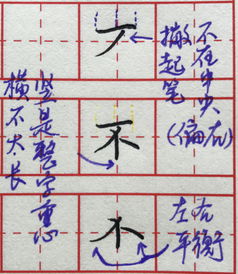 丆
撇起笔
不在中央
(偏右)
横不太长
竖是整字重心
不
不
左右
平衡